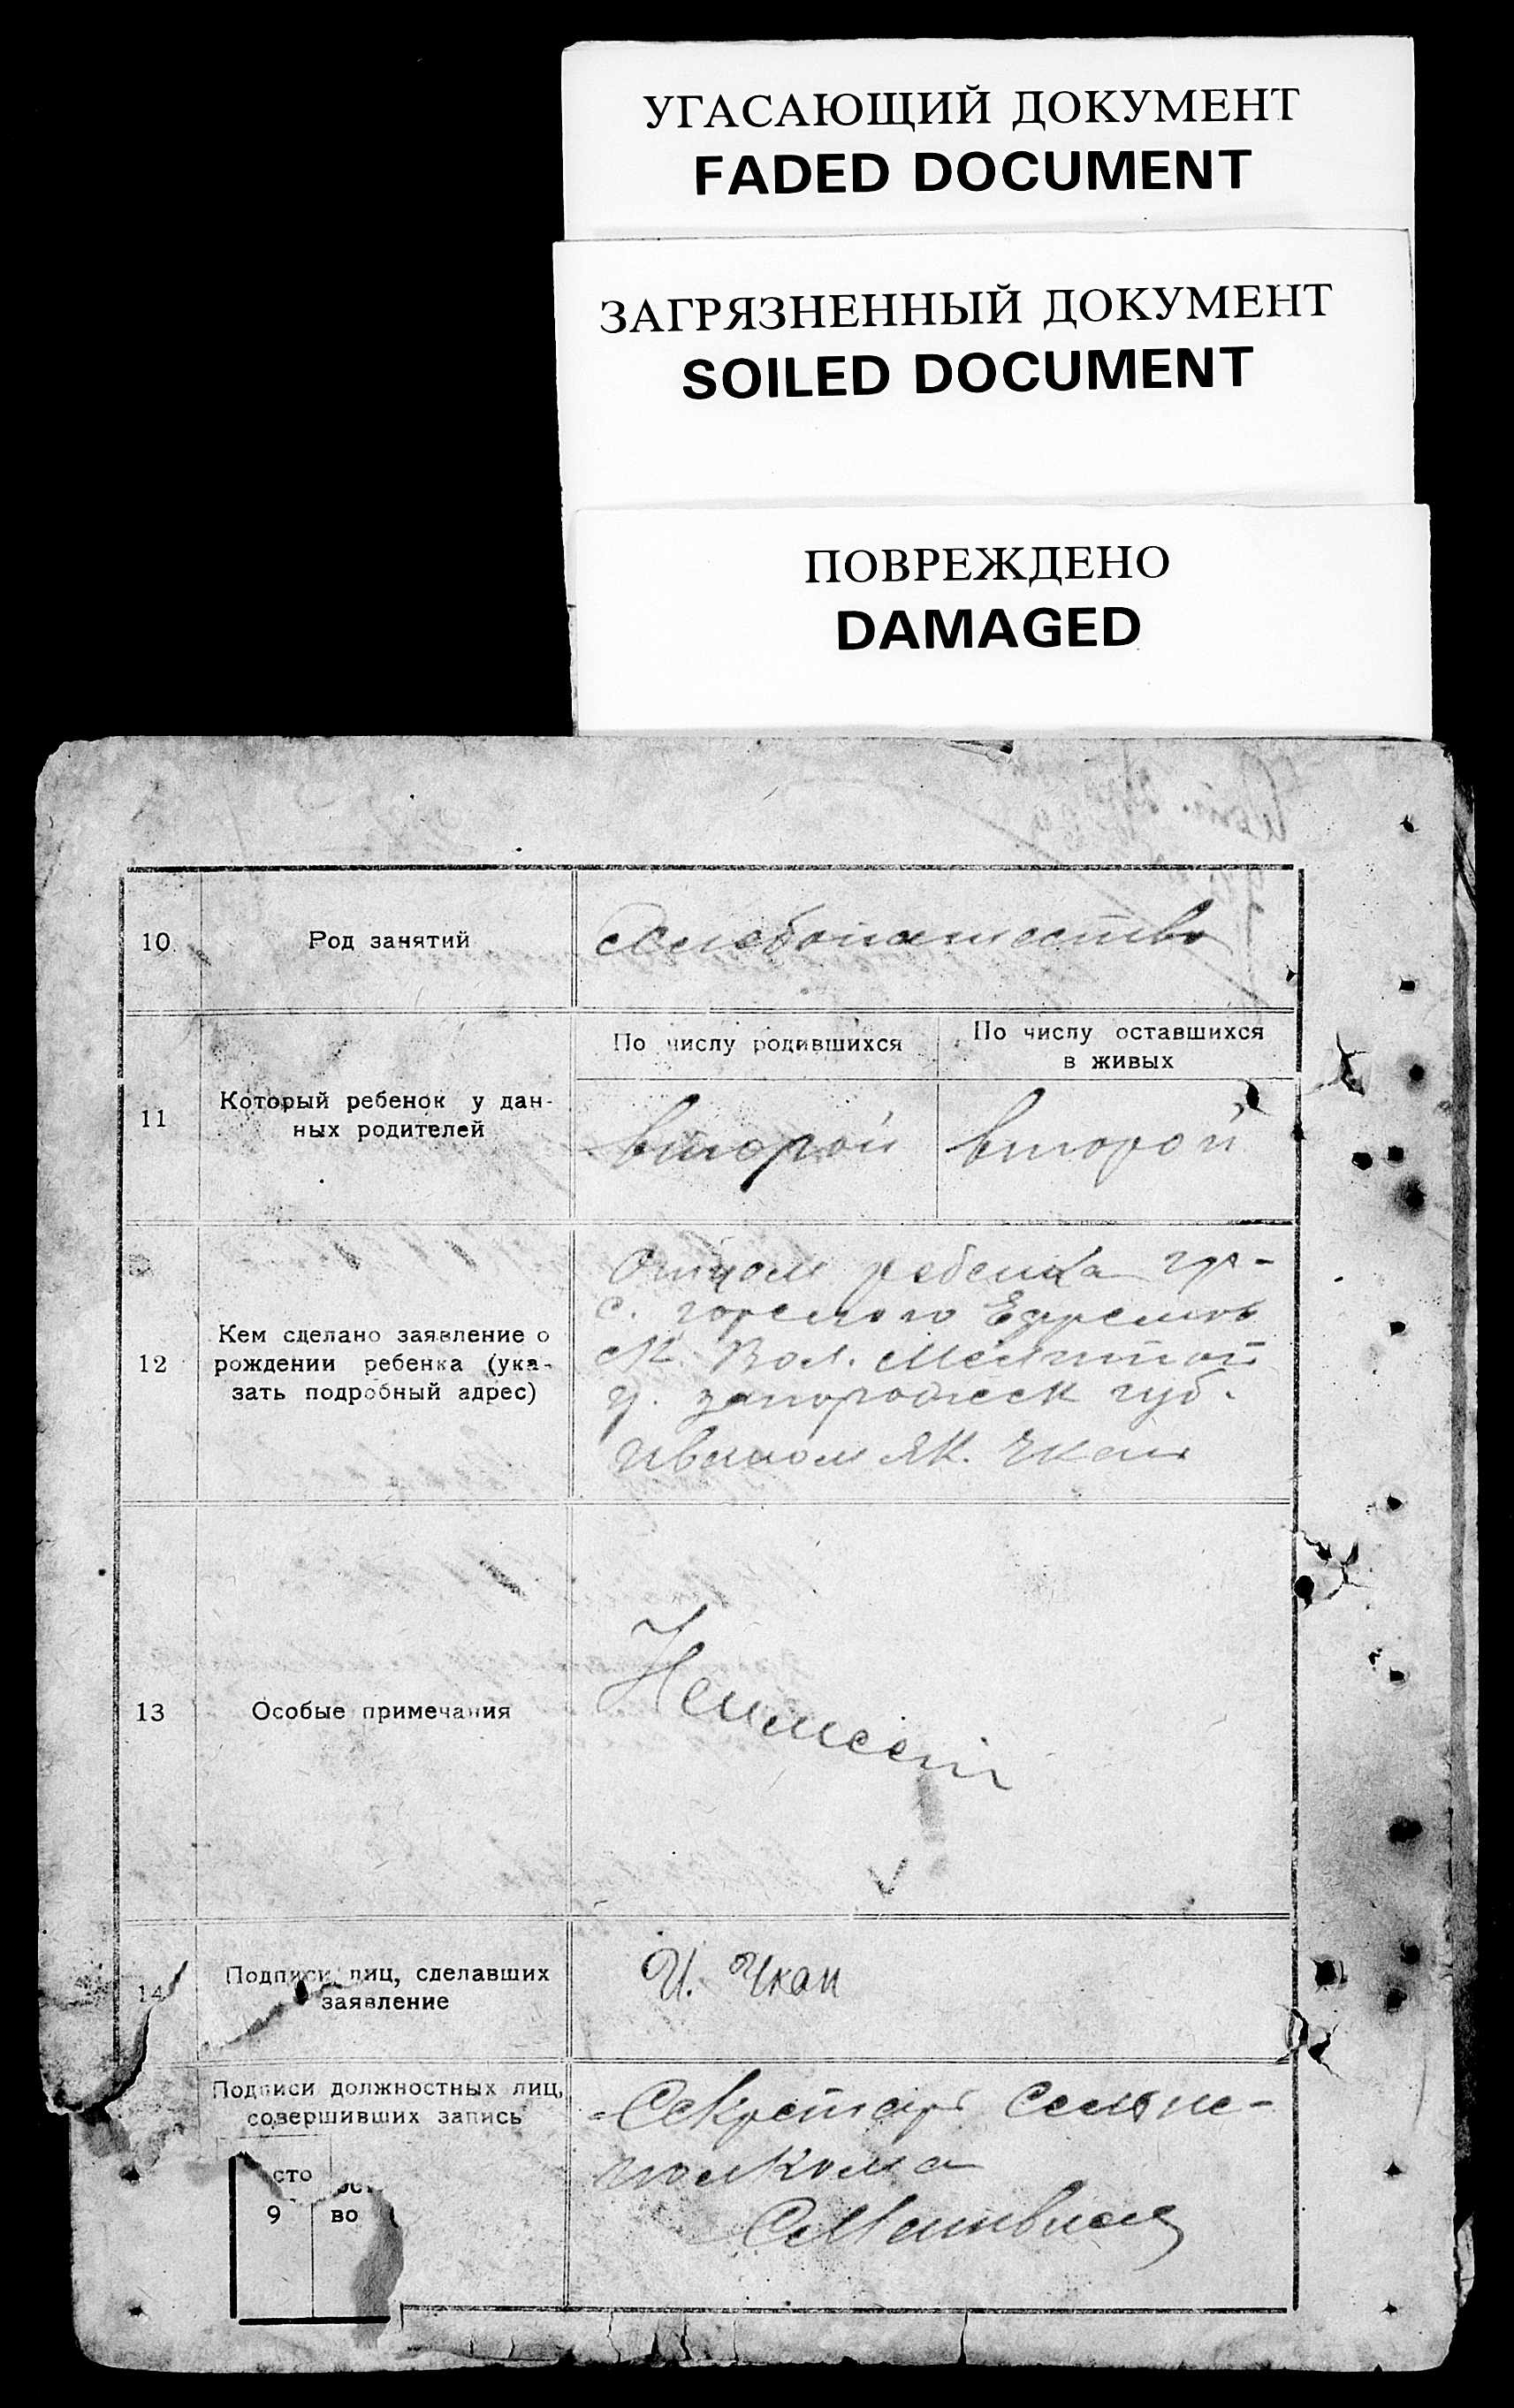 УГАСАЮЩИЙ ДОКУМЕНТ
FADED DOCUMENT
ЗАГРЯЗНЕННЫЙ ДОКУМЕНТ
SOILED DOCUMENT
ПОВРЕЖДЕНО
DAMAGED
10
Род занятий
Хлебопашество
11
Который ребенок у дан-
ных родителей
По числу родившихся
По числу оставшихся
в живых
второй
второй
12
Кем сделано заявление о
рождении ребенка (ука-
зать подробный адрес)
Отцом ребенка гр-
с. горелого Ефремов
ск. Вол. Мелитоп
у. запорожск губ.
Иваном Як. Чкан
13
Особые примечания
14
Подписи лиц, сделавших
заявление
И. Чкан
Подписи должностных лиц,
совершивших запись
Секретарь Сельис-
полкома
сто
9
во